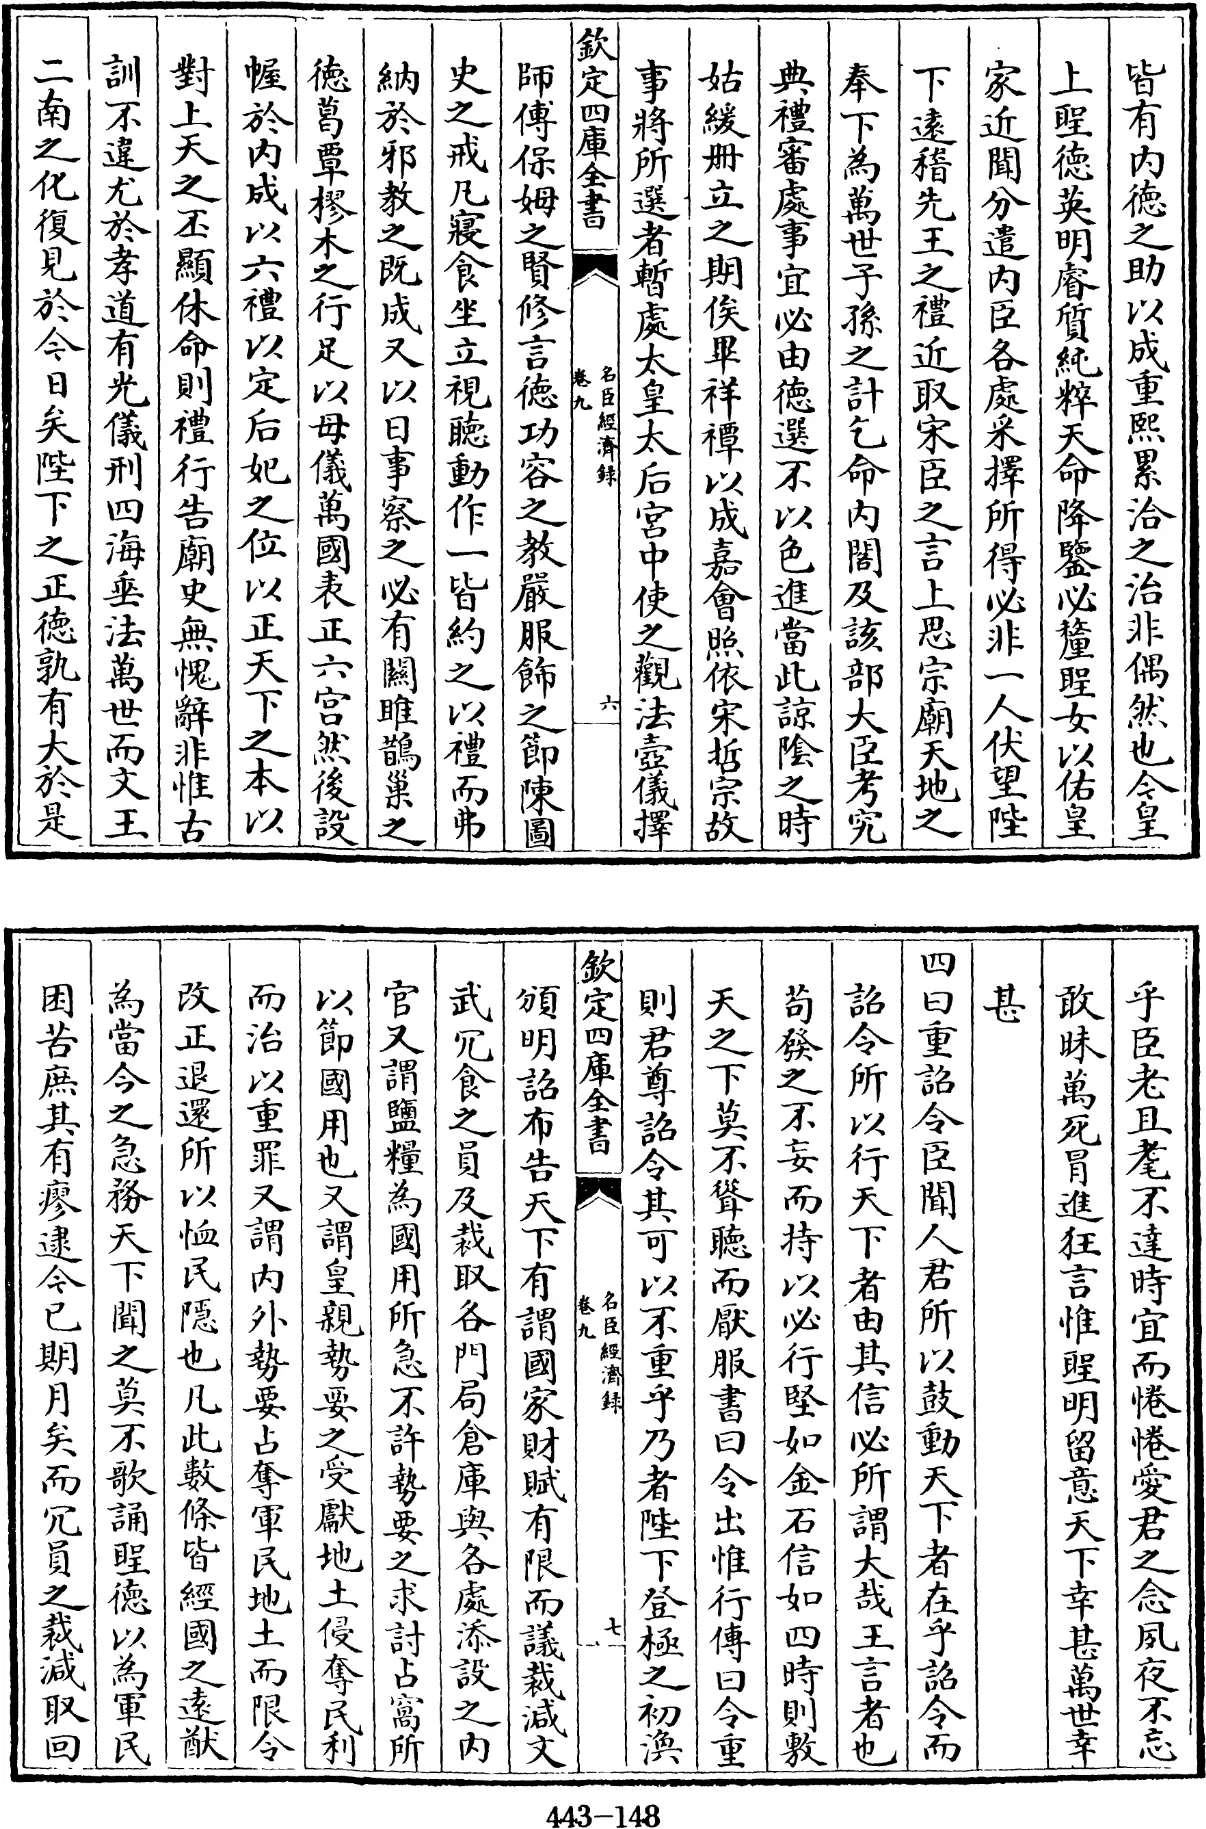 皆有内徳之助以成重熙累洽之治非偶然也今皇
上聖徳英明睿質純粹天命降鑒必釐聖女以佑皇
家近聞分遣内臣各處采擇所得必非一人伏望陛
下遠稽先王之禮近取宋臣之言上思宗廟天地之
奉下為萬世子孫之計乞命内閣及該部大臣考究
典禮審處事宜必由徳選不以色進當此諒隂之時
姑緩册立之期俟畢祥禫以成嘉會照依宋哲宗故
事將所選者暫處太皇太后宮中使之觀法壼儀擇
欽定四庫全書
名臣經濟録
卷九
六
師傅保姆之賢修言徳功容之教嚴服飾之節陳圖
史之戒凡寢食坐立視聽動作一皆約之以禮而弗
納於邪教之既成又以日事察之必有關雎鵲巢之
徳葛覃樛木之行足以母儀萬國表正六宫然後設
幄於内成以六禮以定后妃之位以正天下之本以
對上天之丕顯休命則禮行告廟史無愧辭非惟古
訓不違尤於孝道有光儀刑四海垂法萬世而文王
二南之化復見於今日矣陛下之正徳孰有大於是
乎臣老且耄不達時宜而惓惓愛君之念夙夜不忘
敢昧萬死冐進狂言惟聖明留意天下幸甚萬世幸
甚
四曰重詔令臣聞人君所以鼓動天下者在乎詔令而
詔令所以行天下者由其信必所謂大哉王言者也
苟發之不妄而持以必行堅如金石信如四時則敷
天之下莫不聳聽而厭服書曰令出惟行傳曰令重
則君尊詔令其可以不重乎乃者陛下登極之初渙
欽定四庫全書
名臣經濟録
卷九
七
頒明詔布告天下有謂國家財賦有限而議裁減文
武冗食之員及裁取各門局倉庫與各處添設之内
官又謂鹽糧為國用所急不許勢要之求討占窩所
以節國用也又謂皇親勢要之受獻地土侵奪民利
而治以重罪又謂内外勢要占奪軍民地土而限令
改正退還所以恤民隱也凡此數條皆經國之遠猷
為當今之急務天下聞之莫不歌誦聖德以為軍民
困苦庶其有瘳逮今已期月矣而冗員之裁減取回
443-148